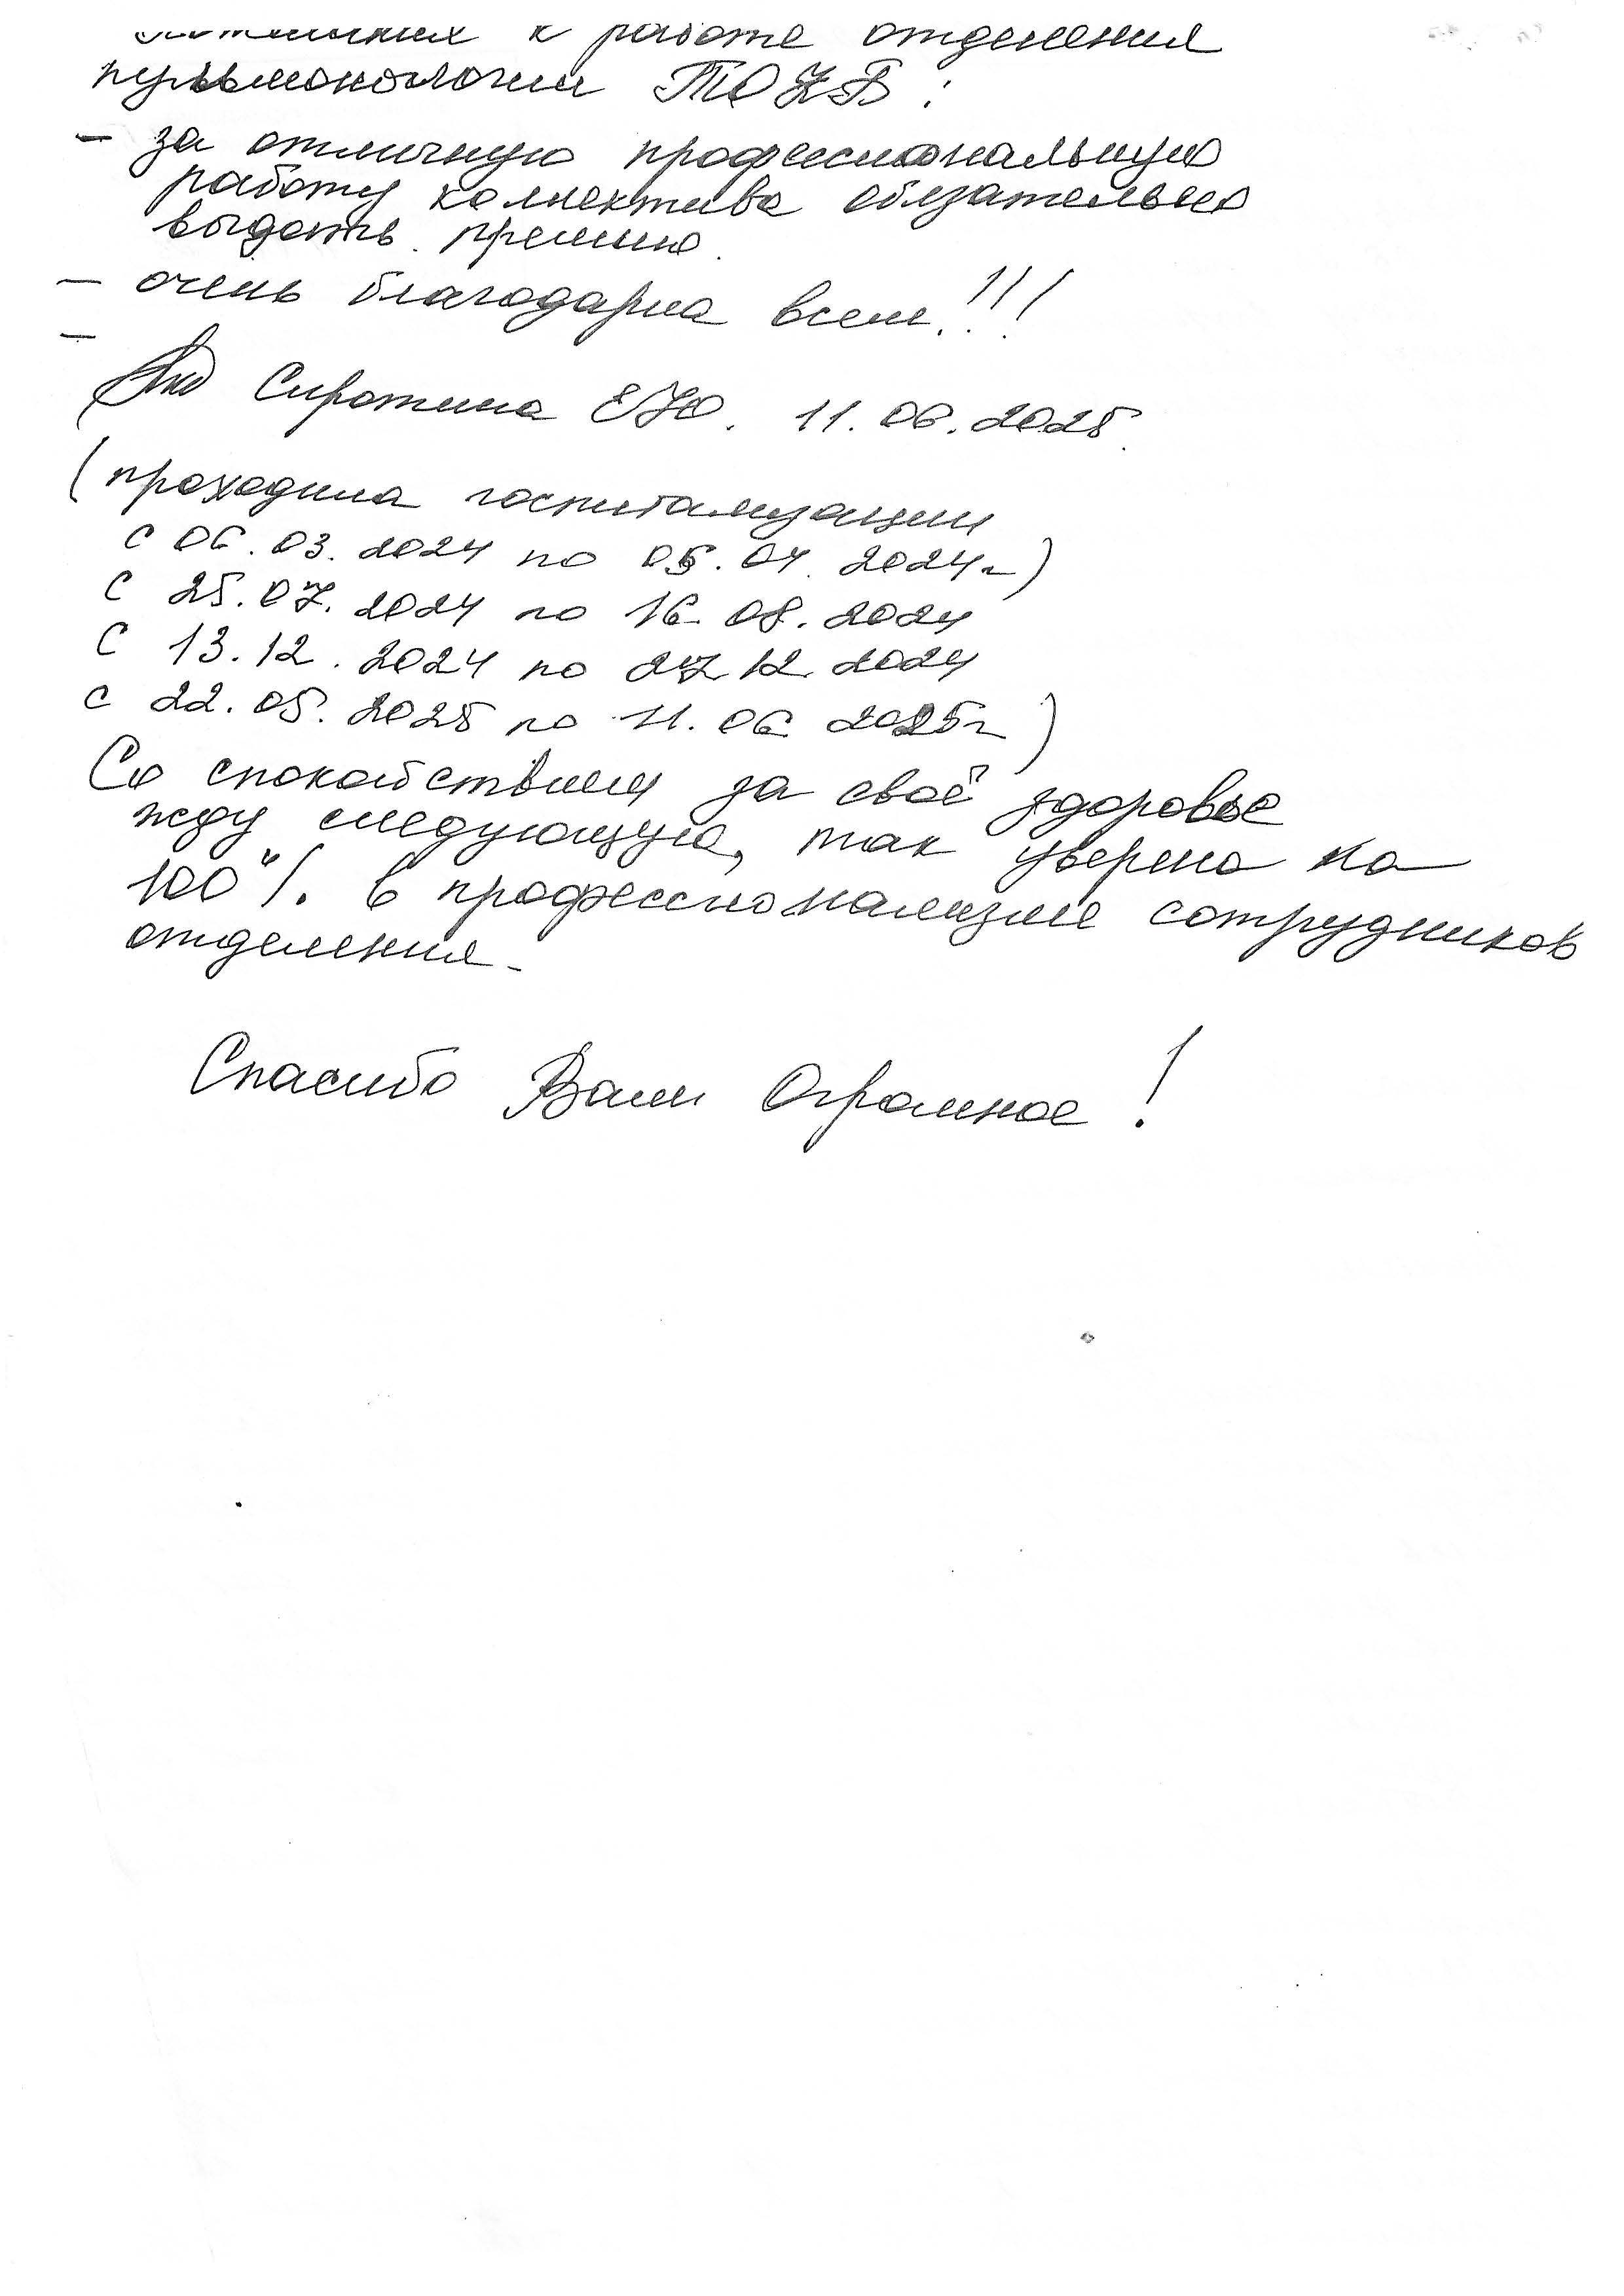 к работе отделения
пульмонологии ТОКБ :
- за отличную профессиональную
работу коллектива обязательно
выдать премию.
- очень благодарна всем!!!
-
Сиротина ЕЮ. 11.06.2025.
(проходила госпитализации
с 06.03.2024 по 05.04.2024г)
с 25.07.2024 по 16.08.2024
с 13.12.2024 по 27.12.2024
с 22.05.2025 по 11.06 2025г)
Со спокойствием за своё здоровье
жду следующую, так уверена на
100% в профессионализме сотрудников
отделения.
Спасибо Вам Огромное!